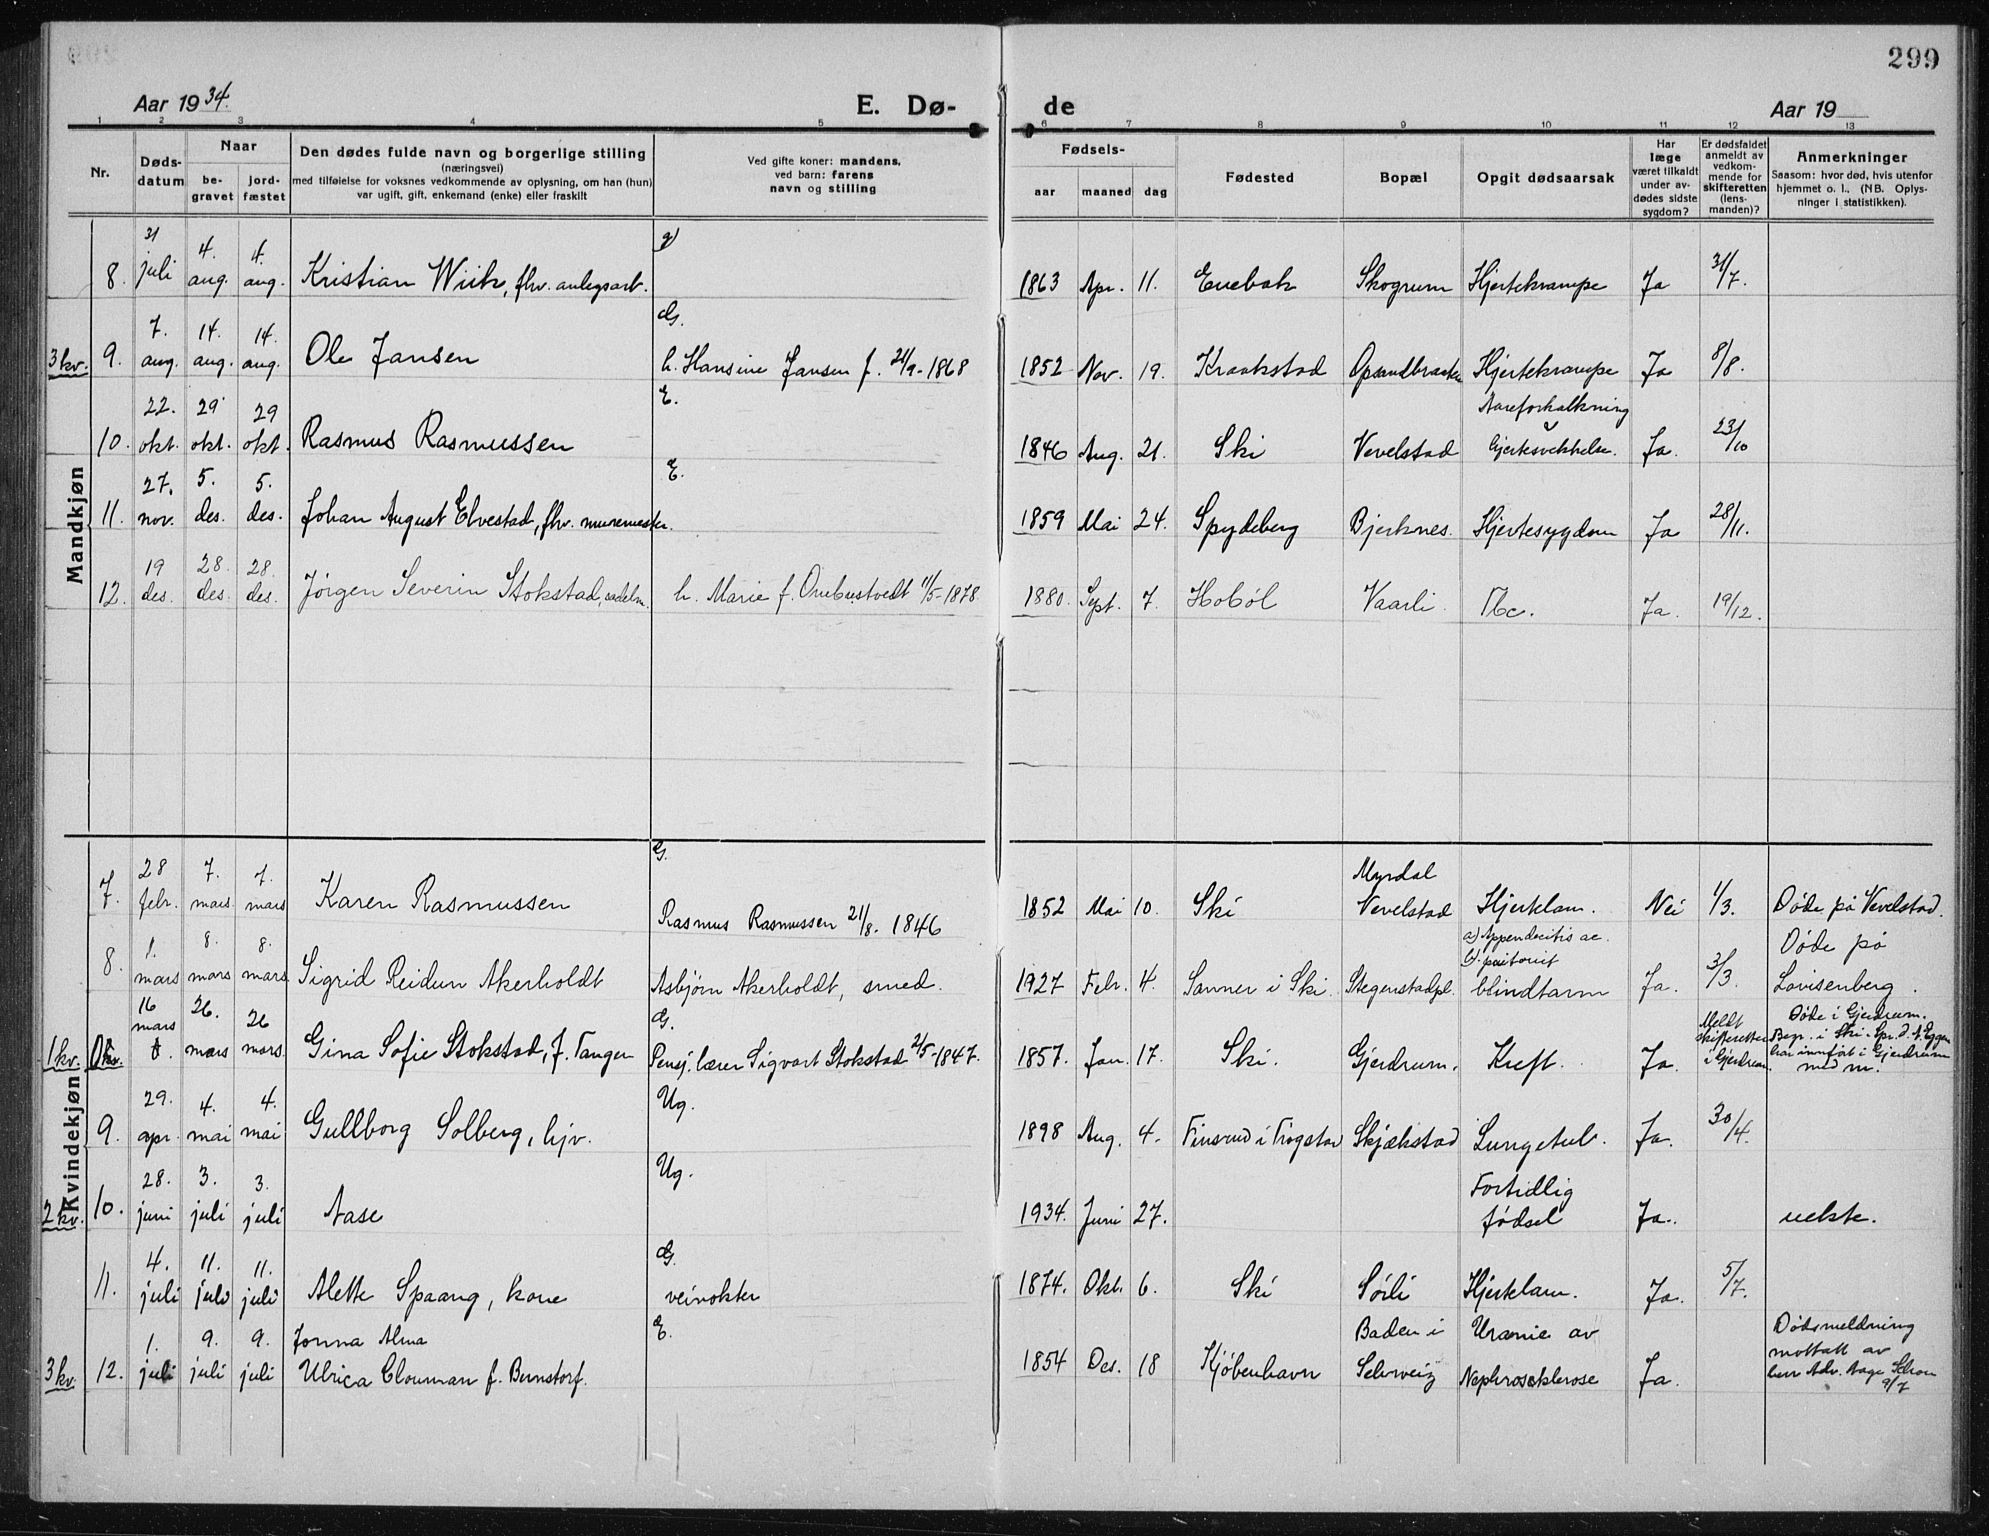 299
Aar 1934.
E. Dø-
de
Aar 19
1 2 3 4 5 6 7 8 9 10 11 12 13
Nr.
Døds-
datum
Naar
be-
gravet
jord-
fæstet
Den dødes fulde navn og borgerlige stilling
(næringsvei)
med tilføielse for voksnes vedkommende av oplysning, om han (hun)
var ugift, gift, enkemand (enke) eller fraskilt
Ved gifte koner: mandens,
ved barn: farens
navn og stilling
Fødsels-
aar maaned dag
Fødested
Bopæl
Opgit dødsaarsak
Har
læge
været tilkaldt
under av-
dødes sidste
sygdom?
Er dødsfaldet
anmeldt av
vedkom-
mende for
skifteretten
(lens-
manden)?
Anmerkninger
Saasom: hvor død, hvis utenfor
hjemmet o. l., (NB. Oplys-
ninger i statistikken).
Mandkjøn
8. 31 juli 4. aug. 4. aug. Kristian Wiik, fhv. anlegsarb. g) 1863 Apr. 11. Enebak Skogrum Hjertekrampe Ja 31/7.
3 kv. 9. 7. aug. 14. aug. 14. aug. Ole Jansen G.
h. Hansine Jansen f. 21/9-1868 1852 Nov. 19. Kraakstad Hjertekrampe Ja 8/8.
10. 22. okt. 29 okt. 29 okt. Rasmus Rasmussen E. 1846 Aug. 21. Ski Vevelstad Aareforkalkning
Hjertesvekkelse. Ja. 23/10
11. 27. nov. 5. des. 5. des. Johan August Elvestad, fhv. muremester. E. 1859 Mai 24. Spydeberg Bjerknes. Hjertesygdom Ja 28/11.
12. 19 des. 28. des. 28. des. Jørgen Severin Stokstad, sadelm. h. Marie f. Ombustvedt 11/5-1878. 1880. Sept. 7. Hobøl Vaarli. Tbc. Ja. 19/12.
Kvindekjøn
7. 28 febr. 7. mars 7. mars Karen Rasmussen G.
Rasmus Rasmussen 21/8. 1846 1852 Mai 10. Ski Myrdal
Vevelstad Hjerteklam. Nei 1/3. Døde på Vevelstad.
8. 1. mars 8. mars 8. mars Sigrid Reidun Akerholdt Asbjørn Akerholdt, smed. 1927 Febr. 4. Sanner i Ski. Stegenstadpl. a) Appendecitis ac.
blindtarm Ja. 3/3. Døde på
Lovisenberg.
1 kv. 0 kv. 16 mars 26. mars 26 mars. Gina Sofie Stokstad, f. Tangen G.
Pensj. lærer Sigvart Stokstad 2/5-1847. 1857. Jan. 17. Ski. Gjerdrum. Kreft. Ja. Meldt
skifteretten
i Gjerdrum. Døde i Gjerdrum.
Begr. i Ski. Spr. d. N. Eggen
har innført i Gjerdrum
med nr.
9. 29. apr. 4. mai 4. mai Gullborg Solberg, hjv. Ug. 1898 Aug. 4. Finsrud i Trøgstad Skjækstad Lungetub. Ja. 30/4.
2 kv. 10. 28. juni 3. juli 3. juli Aase Ug. 1934. Juni 27. Fortidlig
fødsel Ja. uekte.
11. 4. juli 11. juli 11. juli Alette Spaang, kone G.
veivokter 1874. Okt. 6. Ski Sørli Hjerteklam. Ja. 5/7.
3 kv. 12. 1. juli 9. juli 9. juli Jonna Alma
Ulrica Clouman f. Bernstorf. E. 1854 Des. 18 Kjøbenhavn Baden i
Schweiz Uræmie av
Nephrosklerose Ja. Dødsmeldning
mottatt av
herr Adv. Aage Schou
9/7